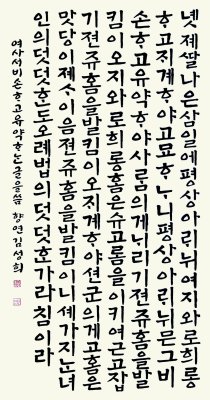 녯졔ᄯᅡᆯ나은삼일에평상아ᄅᆡ뉘여지와로희롱
ᄒᆞ고지계ᄒᆞ야고ᄒᆞᄂᆞ니평상아ᄅᆡ뉘믄그비
손ᄒᆞ고유약ᄒᆞ야사ᄅᆞᆷ의게ᄂᆞ리기젼쥬홈을발
킴이오지와로희롱홈은슈고롬을이키여근고잡
기젼쥬홈을발킴이오지계ᄒᆞ야션군의게고홈은
맛당이졔ᄉᆞ이음젼쥬홈을발킴이니세가지ᄂᆞᆫ녀
인의덧덧ᄒᆞᆫ도오례법의덧덧ᄒᆞᆫ가라침이라
여사서비손ᄒᆞ고유약ᄒᆞᆫ글을씀 향연김성희